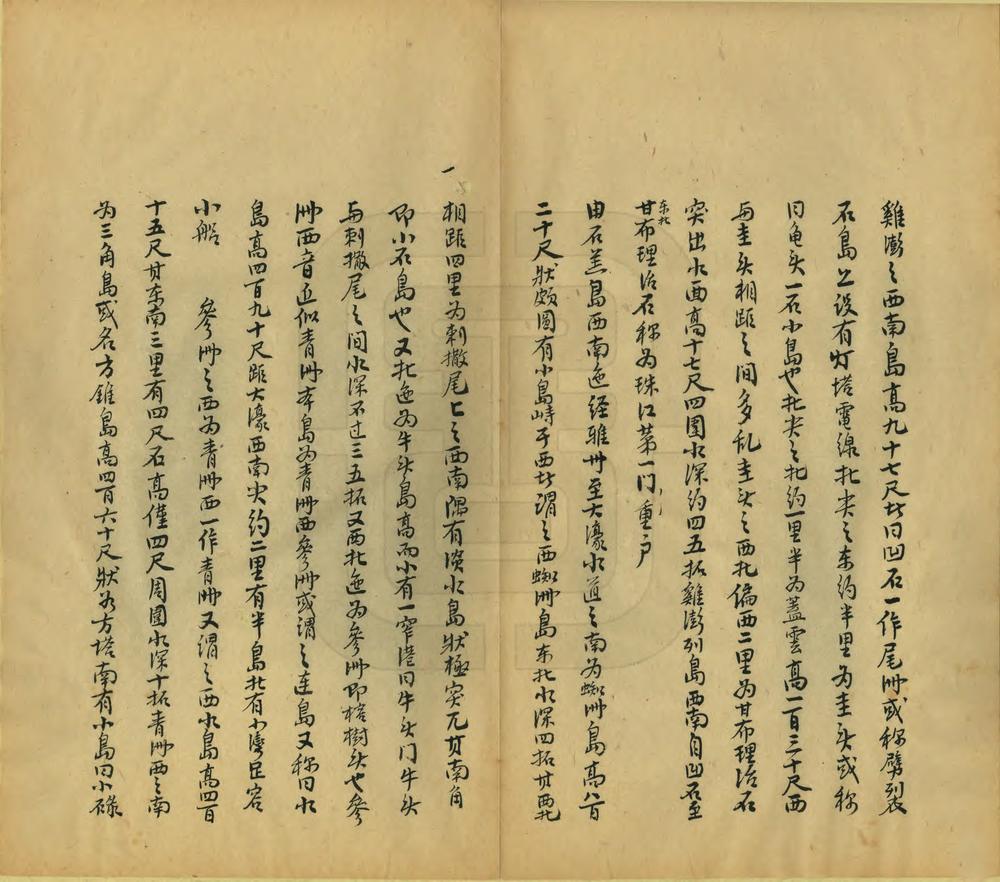 雞澎之西南島高九十七尺背曰凹石一作尾洲或称劈裂
石島上设有灯塔電線北尖之东约半里为圭头或称
曰龟头一石小島也北尖之北约一里半为蓋雲高一百三十尺西
与圭头相距之间多乱圭头之西北偏西二里为甘布理治石
突出水面高十七尺四圍水深约四五拓雞澎列島西南自凹石至
东北
甘布理治石称为珠江第一门重户
由石羔島西南迤经雅卅至大濠水道之南为蜘洲島高八百
二十尺狀頗圆有小島峙于西背谓之西蜘洲島东北水深四拓其西北
一
相距四里为刺撒尾匕之西南隅有淡水島狀極突兀其南角
即小石島也又北迤为牛头島高而小有一窄港曰牛头门牛头
与刺撒尾之间水深不过三五拓又西北迤为參洲即榕樹头也參
洲西音近似青洲本島为青洲西參洲或谓之连島又称曰水
島高四百九十尺距大濠西南尖约二里有半島北有小灣足容
小船 參洲之西为青洲西一作青洲又谓之西水島高四百
十五尺其东南三里有四尺石高僅四尺周圍水深十拓青洲西之南
为三角島或名方錐島高四百六十尺狀若方塔南有小島曰小碌